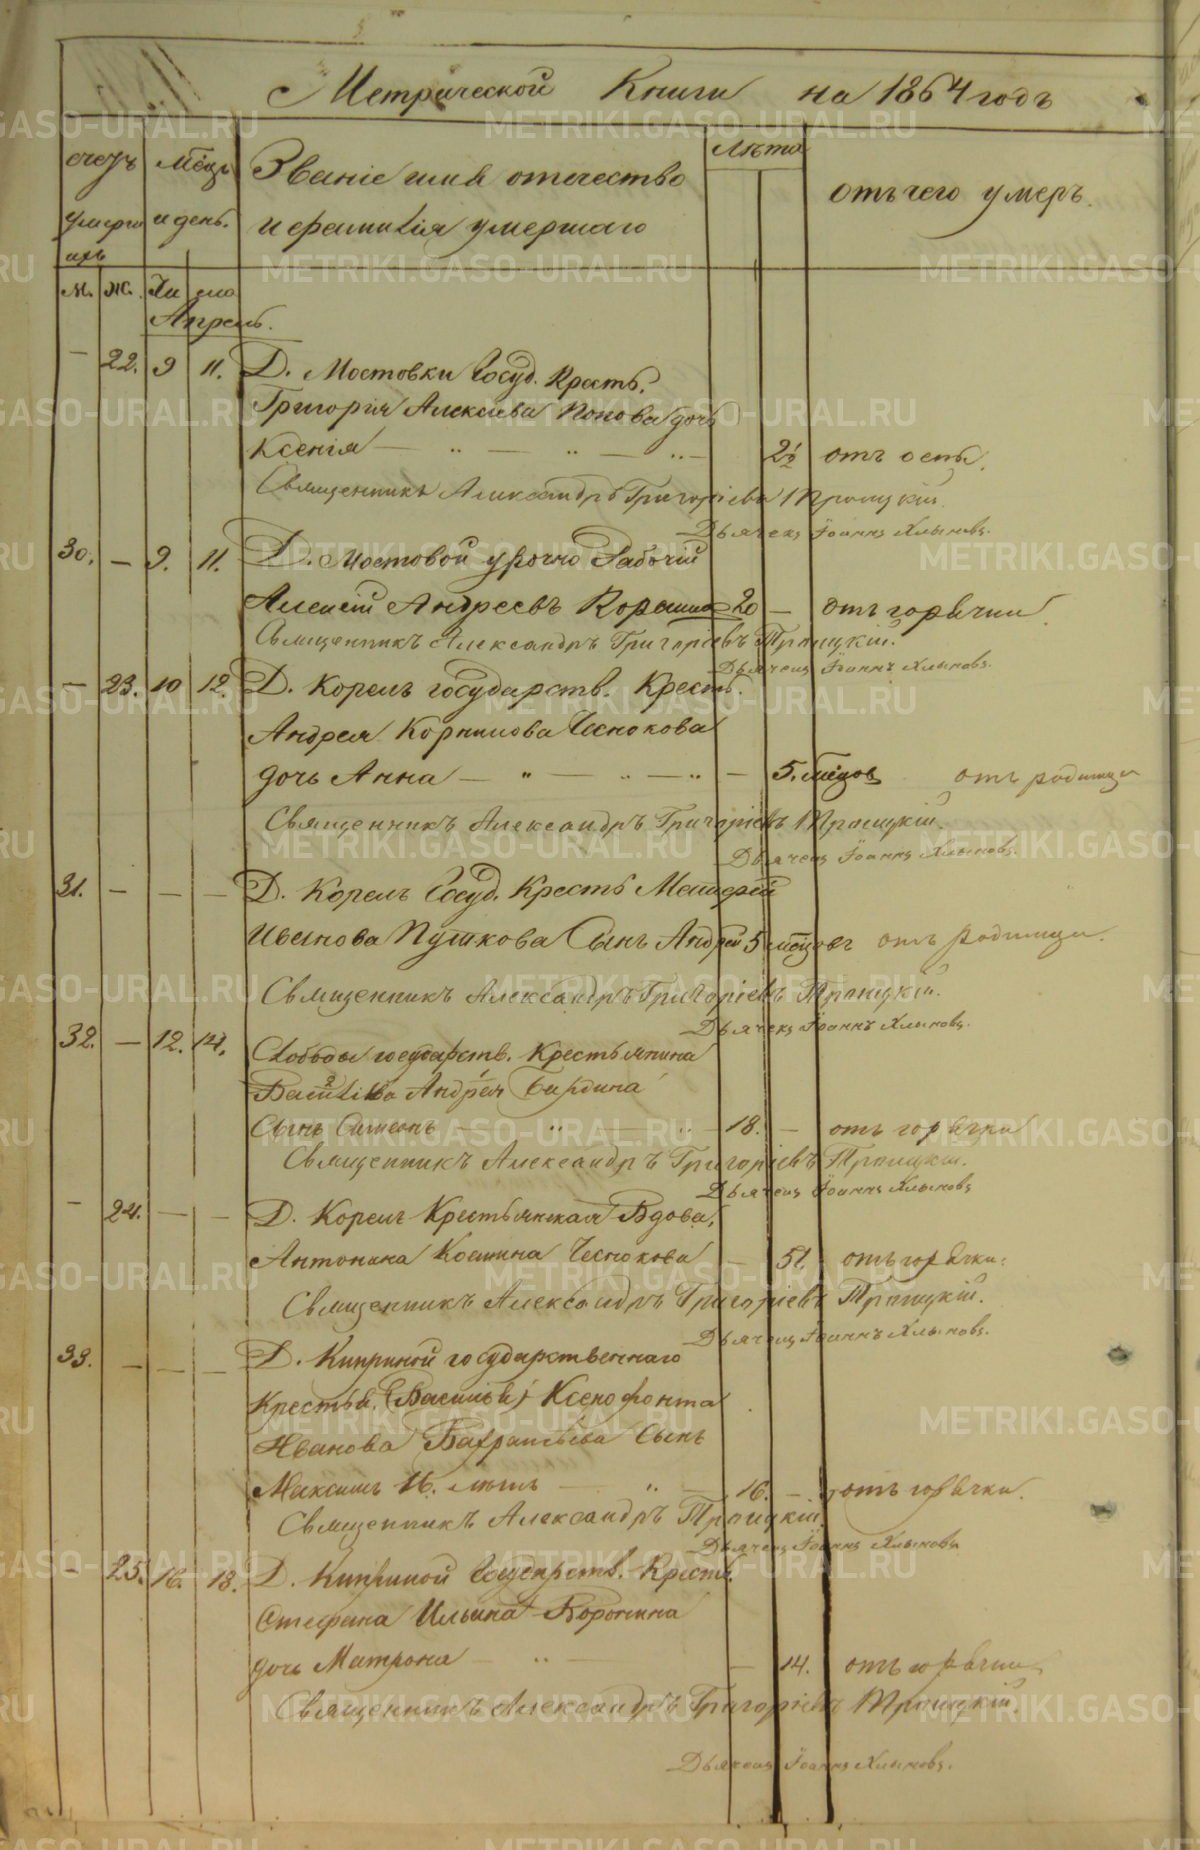 Метрической Книги на 1864 годъ
счетъ умершихъ
мѣсяцъ и день.
Званіе имя отчество
и фамилія умершаго
Лѣта
отъ чего умеръ.
м. ж. Чи сло
Апрель.
— 22. 9 11. Д. Мостовки Госуд. Кресть.
Григорія Алексѣева Попова дочь
Ксенія — „ — „ — „ — 2½ отъ оспы.
Священникъ Александръ Григоріевъ Троицкій.
Дьячекъ Іоаннъ Хлыновъ.
30. — 9. 11. Д. Мостовой урочно Рабочій
Алексѣй Андреевъ 20 — отъ горячки.
Священникъ Александръ Григоріевъ Троицкій.
Дьячекъ Іоаннъ Хлыновъ.
— 23. 10 12. Д. Корелъ государств. Кресть.
Андрея Корнилова Чеснокова
дочь Анна — „ — „ — „ — 5. мѣсцовъ отъ родимца
Священникъ Александръ Григоріевъ Троицкій.
Дьячекъ Іоаннъ Хлыновъ.
31. — — — Д. Корелъ Госуд. Кресть Матфѣй
Иванова Пушкова Сынъ Андрей 5 мѣсцовъ отъ родимца.
Священникъ Александръ Григоріевъ Троицкій.
Дьячекъ Іоаннъ Хлыновъ.
32. — 12. 14. Слободы государств. Крестьянина
Андрея Бардина
Сынъ Симеонъ — „ — „ — 18. — отъ горячки
Священникъ Александръ Григоріевъ Троицкій.
Дьячекъ Іоаннъ Хлыновъ
— 24. — — Д. Корелъ Крестьянская Вдова,
Антонина Козмина Чеснокова — 51. отъ горячки.
Священникъ Александръ Григоріевъ Троицкій.
Дьячекъ Іоаннъ Хлыновъ.
33. — — — Д. Киприной государственнаго
Кресть. (Васильи) Ксенофонта
Иванова Сынъ
Максимъ 16. лѣтъ — „ — 16. — отъ горячки.
Священникъ Александръ Троицкій.
Дьячекъ Іоаннъ Хлыновъ
— 25. 16. 18. Д. Киприной Государств. Кресть.
Стефана Ильина Воронина
дочь Матрона — „ — — 14. отъ горячки
Священникъ Александръ Григоріевъ Троицкій.
Дьячекъ Іоаннъ Хлыновъ.
METRIKI.GASO-URAL.RU